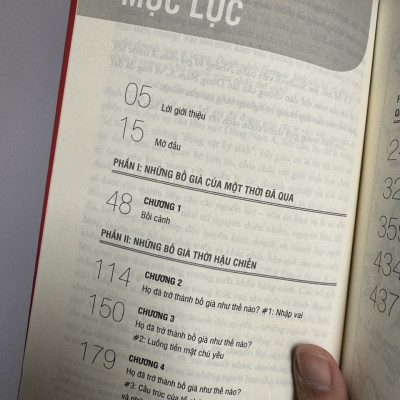 MỤC LỤC
05 Lời giới thiệu
15 Mở đầu
PHẦN I: NHỮNG BỐ GIÀ CỦA MỘT THỜI ĐÃ QUA
48 CHƯƠNG 1
Bối cảnh
PHẦN II: NHỮNG BỐ GIÀ THỜI HẬU CHIẾN
114 CHƯƠNG 2
Họ đã trở thành bố già như thế nào? #1: Nhập vai
150 CHƯƠNG 3
Họ đã trở thành bố già như thế nào?
#2: Luồng tiền mặt chủ yếu
179 CHƯƠNG 4
Họ đã trở thành bố già như thế nào?
#3: Cấu trúc của tổ
434
437